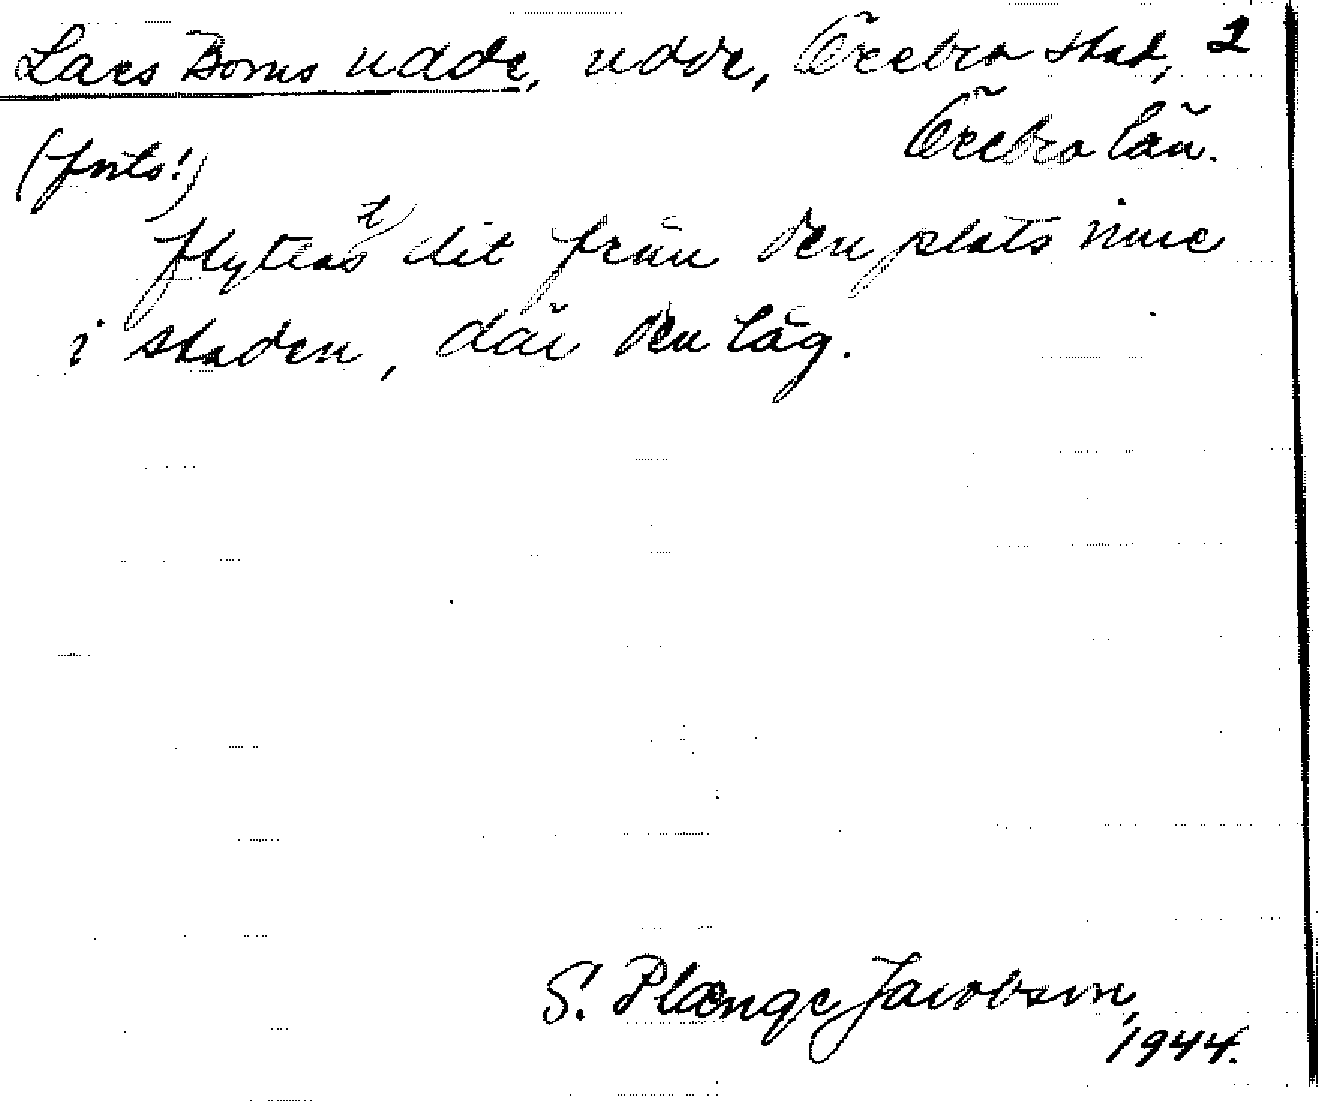 Lars Boms udde, udde, Örebro stad, 2
Örebro län.
(forts!)
flyttas dit från den plats inne
i staden, där den låg.
S. Plænge Jacobson,
1944.